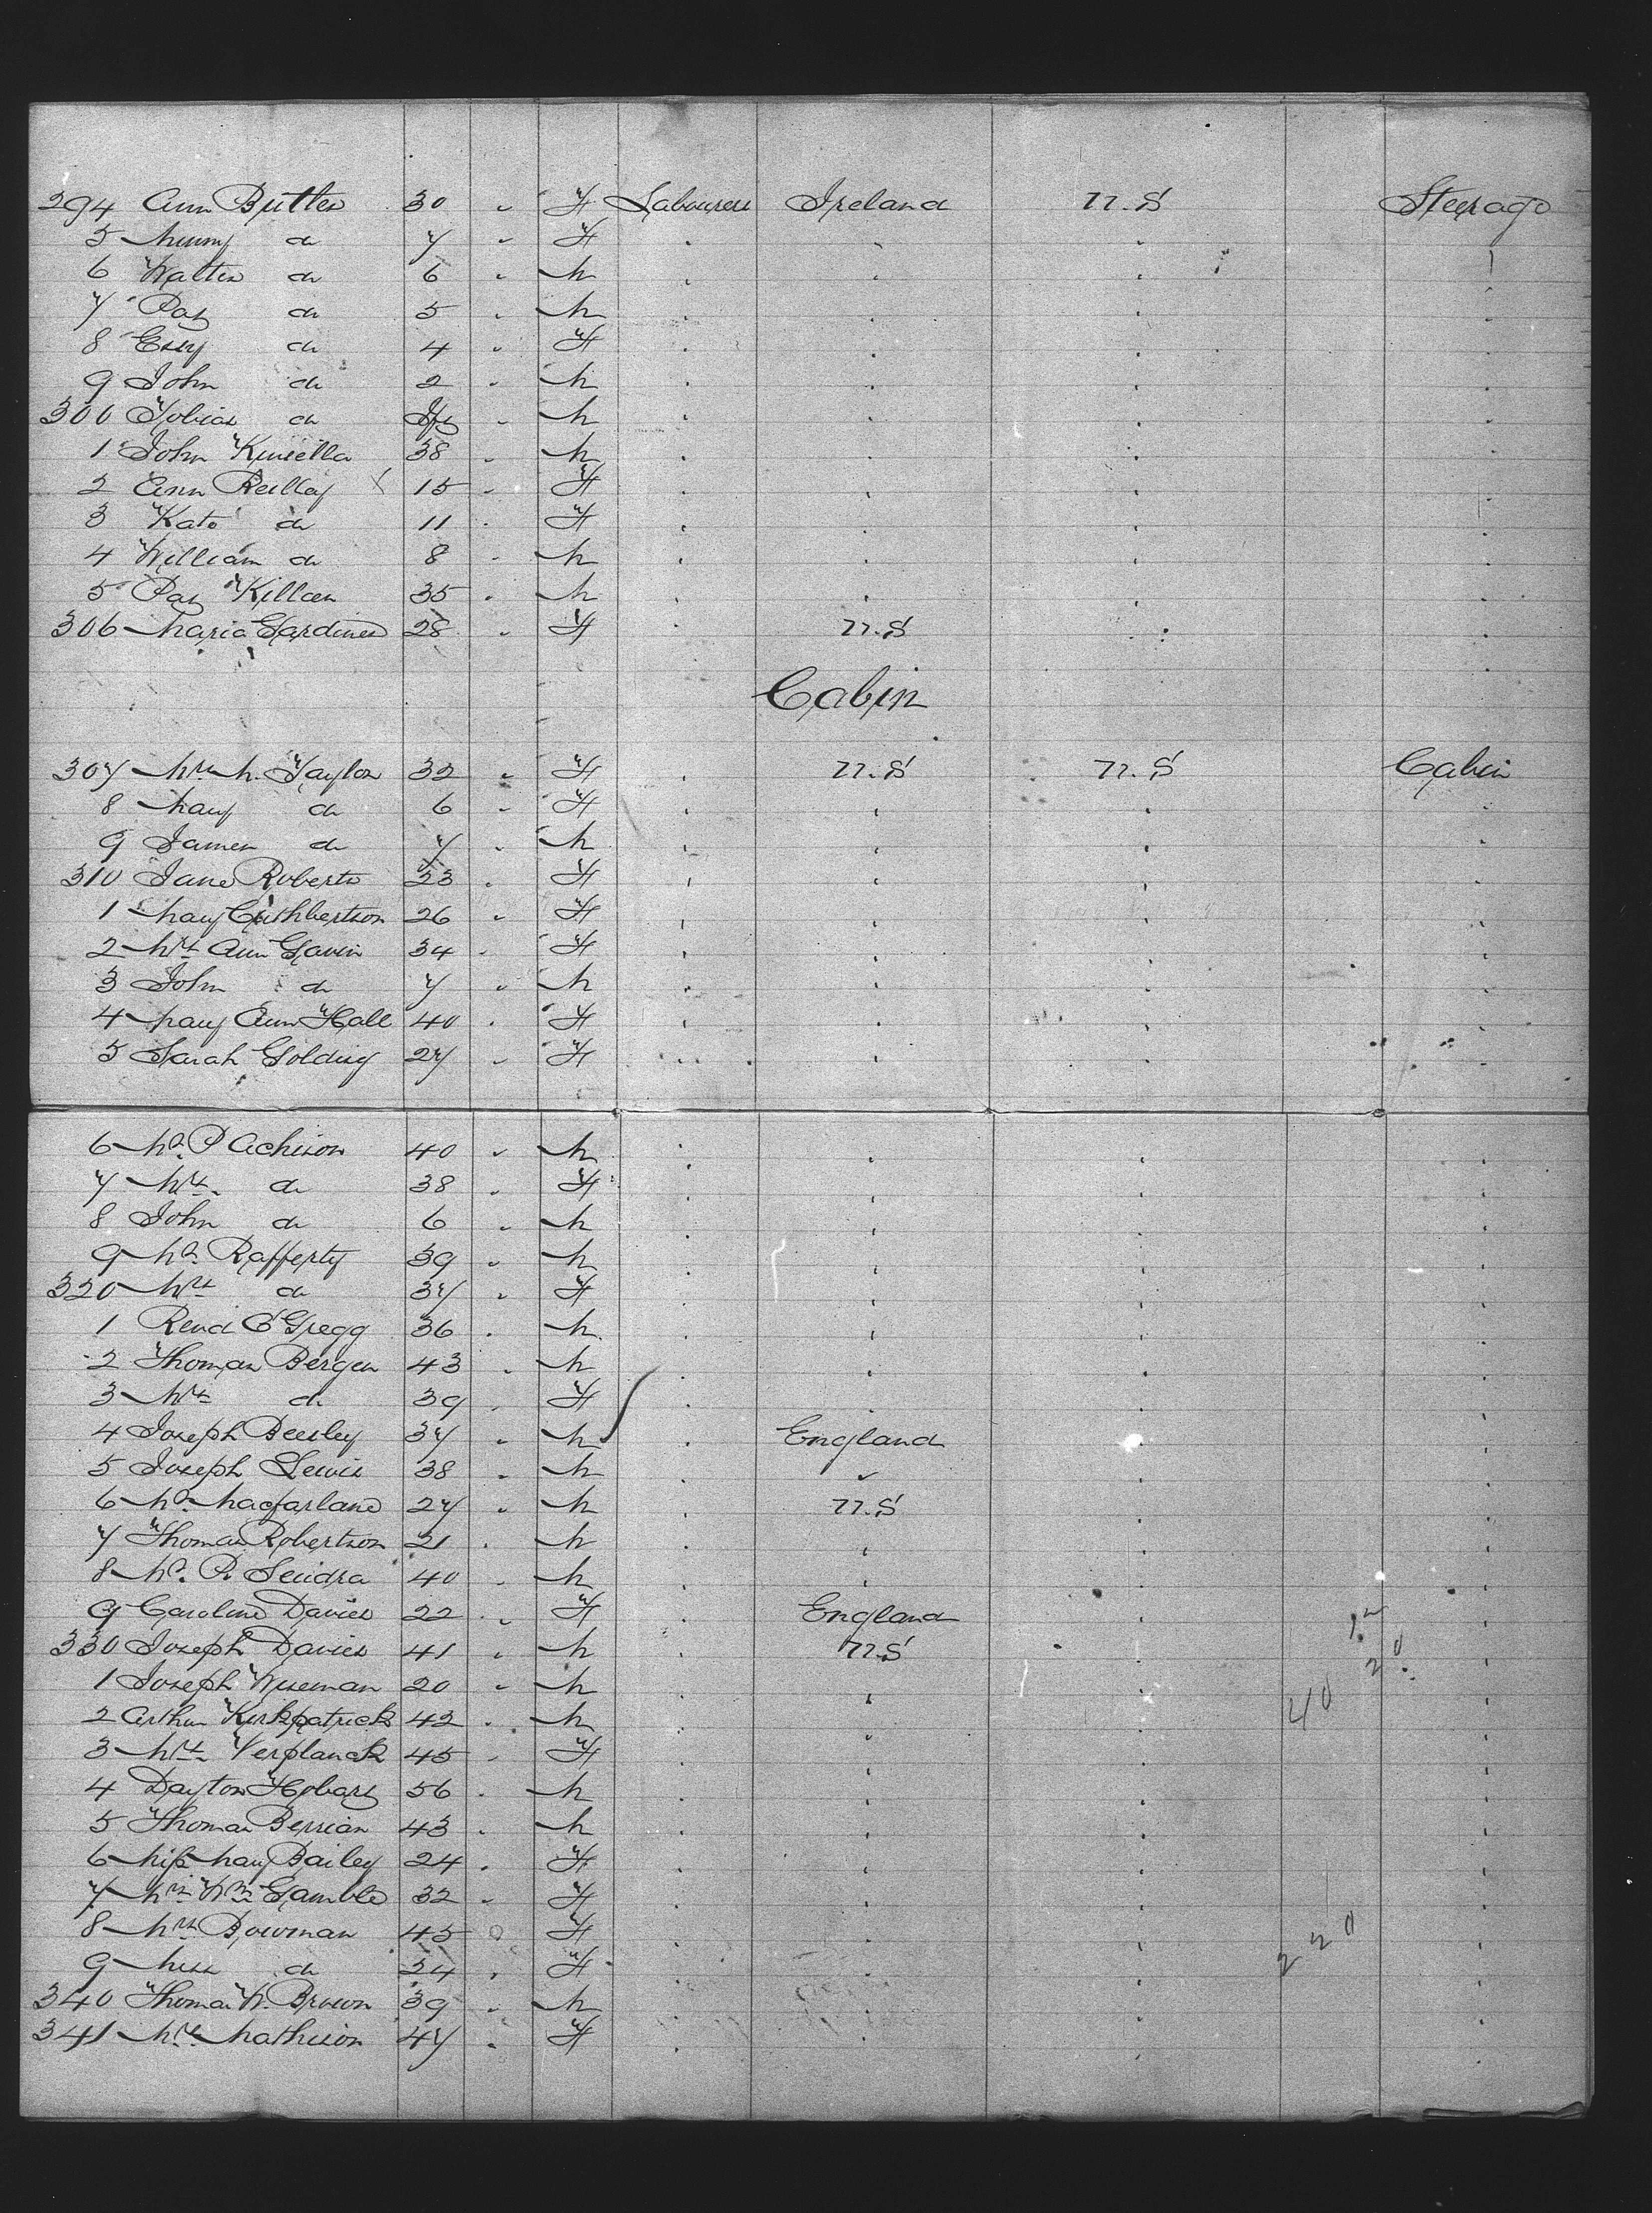 294 Ann Butler 30 " F Labourers Ireland U.S Steerage
5 do 7 " F
6 Walter do 6 " M
7 Pat do 5 " M
8 do 4 " F
9 John do 2 " M
300 Tobias do Inf " M
1 John Kinsella 38 " M
2 Ann Reilly 15 " F
3 Kate do 11 " F
4 William do 8 " M
5 Pat Killeen 35 " M
306 Maria Gardiner 28 " F U.S
Cabin
307 Mrs M. Taylor 32 " F U.S U.S Cabin
8 Mary do 6 " F
9 James do 7 " M
310 Jane Roberts 23 " F
1 Mary Cuthbertson 26 " F
2 Mrs Ann Gavin 34 " F
3 John do 7 " M
4 Mary Ann Hall 40 " F
5 Sarah Golding 27 " F
6 Mr. P Acheson 40 " M
7 Mrs. do 38 " F
8 John do 6 " M
9 Mr. Rafferty 39 " M
320 Mrs do 37 " F
1 Revd O'Gregg 36 " M
2 Thomas Bergen 43 " M
3 Mrs do 39 " F
4 Joseph Beesley 37 " M England
5 Joseph Lewis 38 " M "
6 Mr. Macfarland 27 " M U.S
7 Thomas Robertson 21 " M
8 Mr. P. 40 " M
9 Caroline Davies 22 " F England
330 Joseph Davies 41 " M U.S
1 Joseph Wiseman 20 " M
2 Arthur Kirkpatrick 42 " M
3 Mrs. Verplanck 45 " F
4 Dayton Hobart 56 " M
5 Thomas Berrian 43 " M
6 Miss Mary Bailey 24 " F
7 Mrs Wm Gamble 32 " F
8 Mrs Bowman 45 " F
9 Miss do 24 " F
340 Thomas W. Brown 39 " M
341 Mrs. Mathison 47 " F